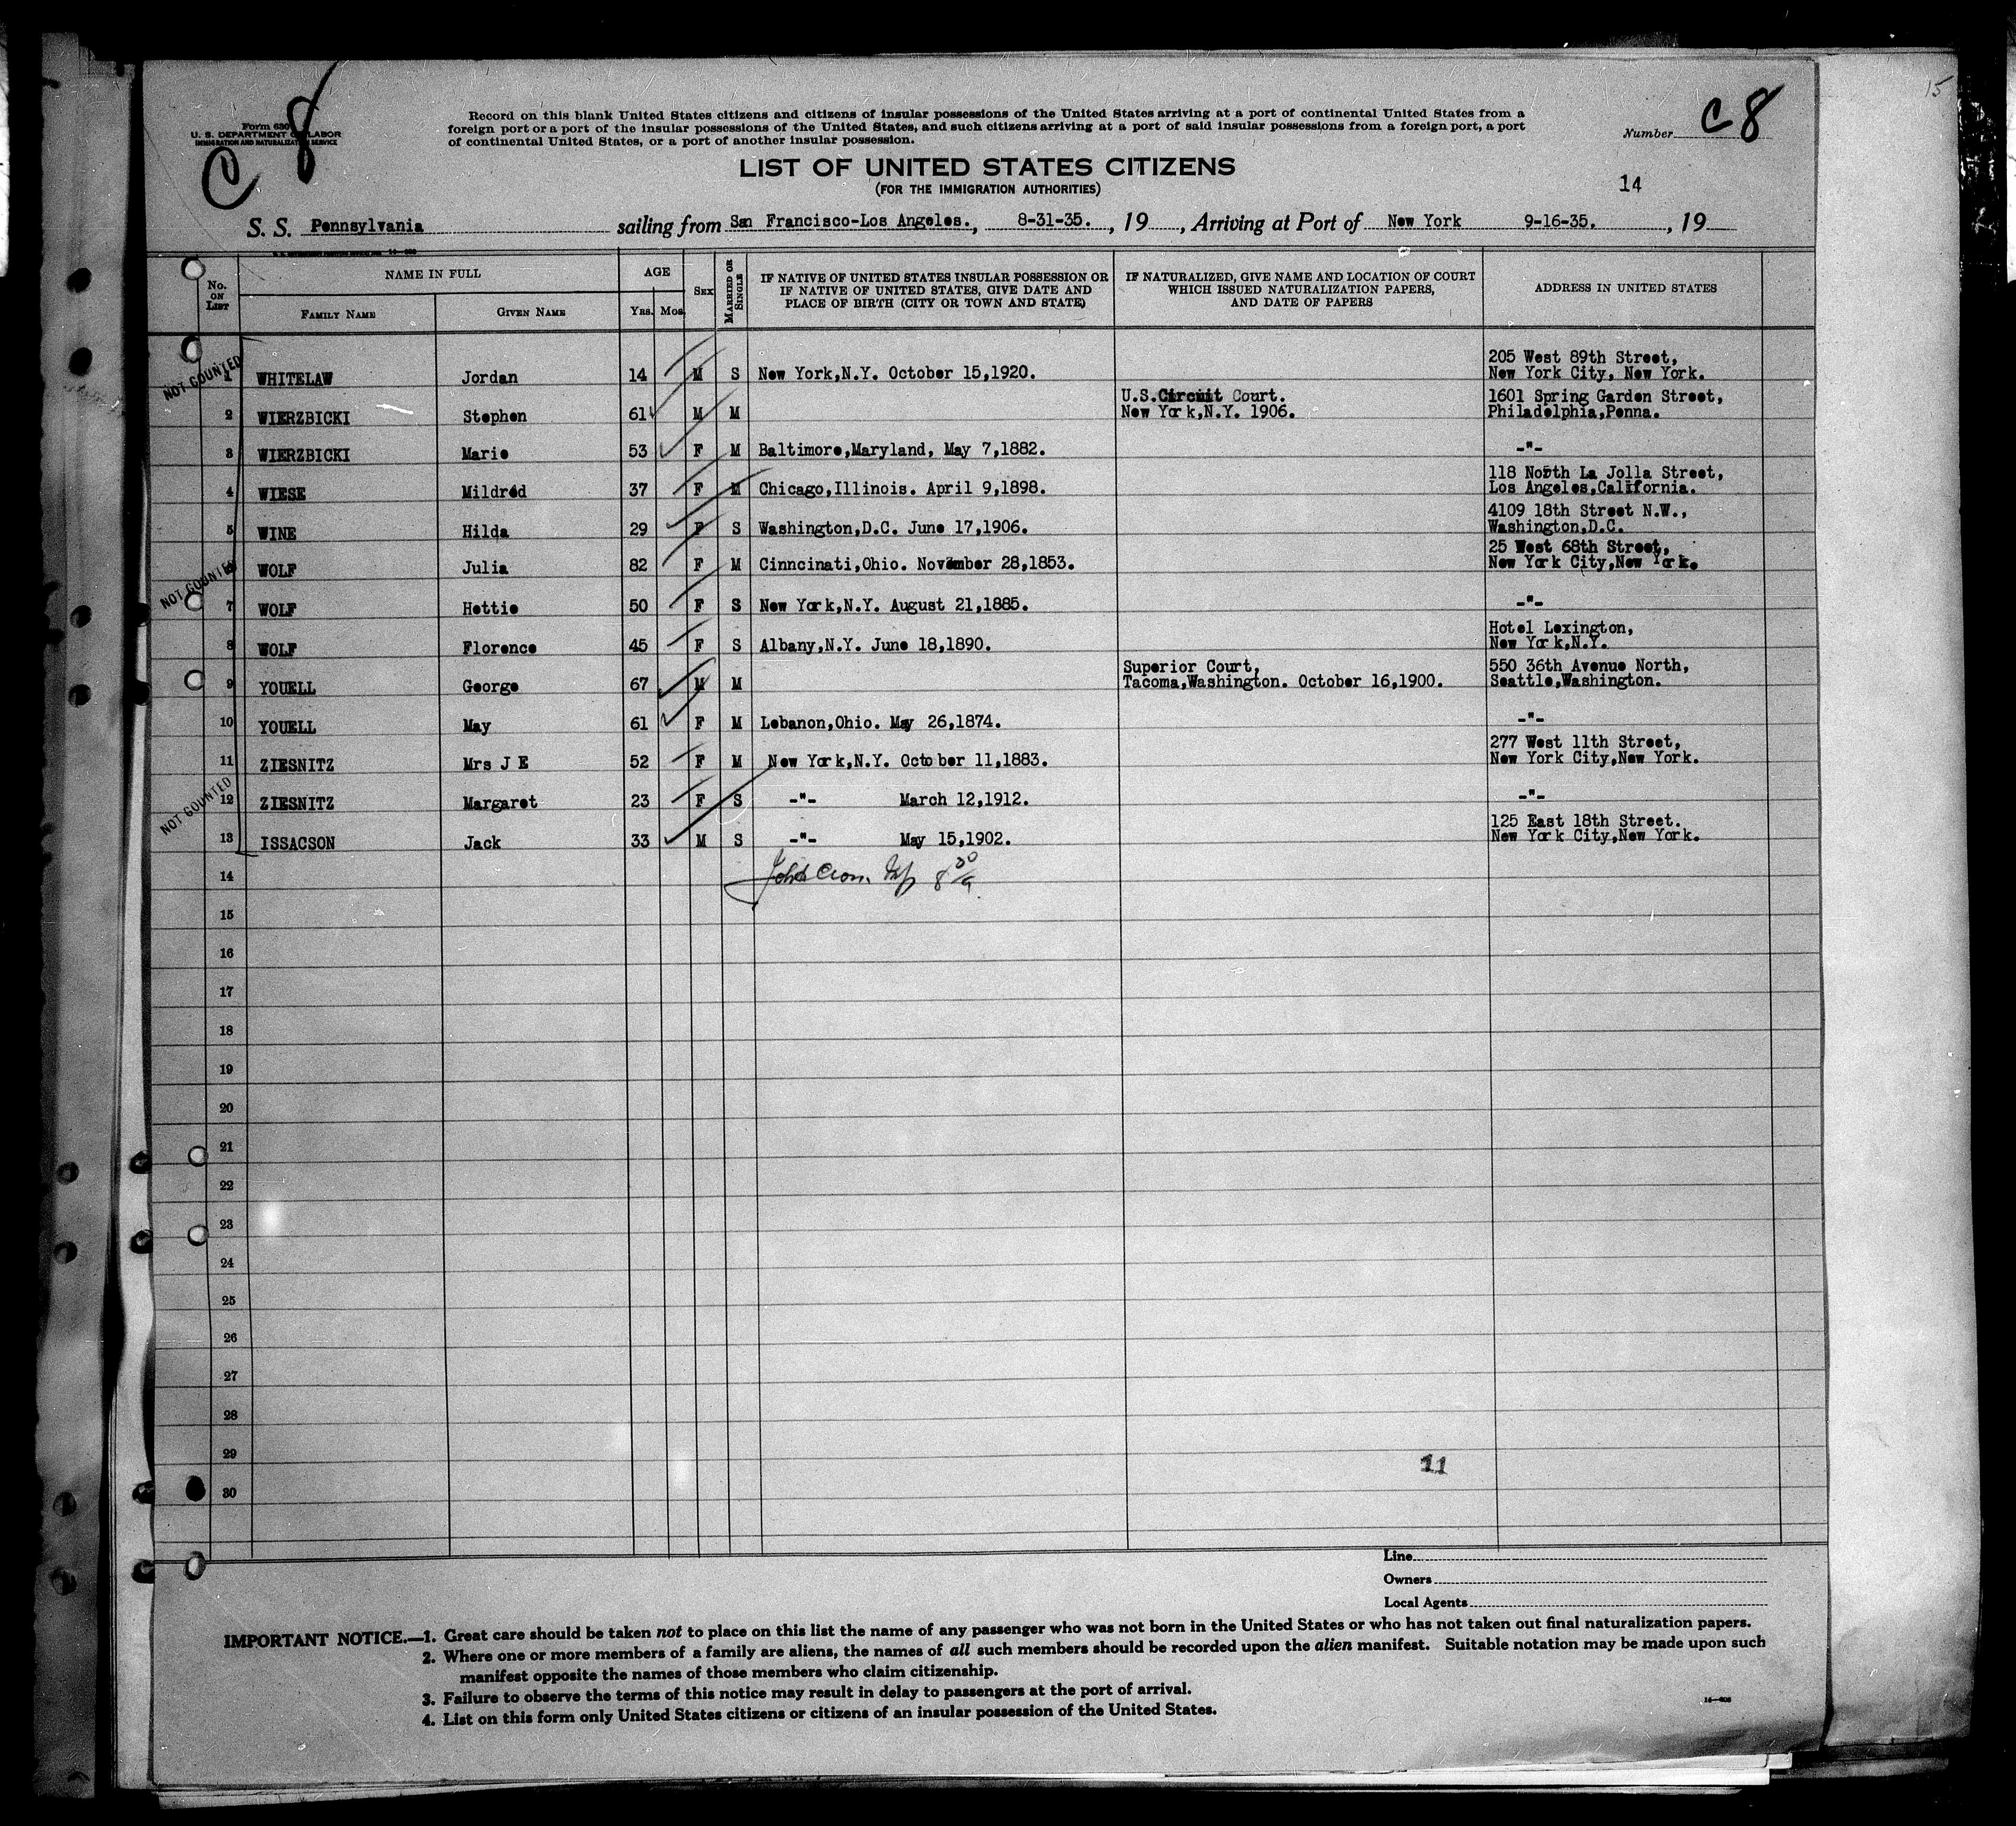 15
C 8
Form 630
U. S. DEPARTMENT OF LABOR
IMMIGRATION AND NATURALIZATION SERVICE
Record on this blank United States citizens and citizens of insular possessions of the United States arriving at a port of continental United States from a
foreign port or a port of the insular possessions of the United States, and such citizens arriving at a port of said insular possessions from a foreign port, a port
of continental United States, or a port of another insular possession.
Number C 8
LIST OF UNITED STATES CITIZENS
(FOR THE IMMIGRATION AUTHORITIES)
14
S. S. Pennsylvania sailing from San Francisco-Los Angeles., 8-31-35. , 19 , Arriving at Port of New York 9-16-35. , 19
No. ON LIST
NAME IN FULL
FAMILY NAME
GIVEN NAME
AGE
YRS. MOS.
SEX
MARRIED OR SINGLE
IF NATIVE OF UNITED STATES INSULAR POSSESSION OR
IF NATIVE OF UNITED STATES, GIVE DATE AND
PLACE OF BIRTH (CITY OR TOWN AND STATE)
IF NATURALIZED, GIVE NAME AND LOCATION OF COURT
WHICH ISSUED NATURALIZATION PAPERS,
AND DATE OF PAPERS
ADDRESS IN UNITED STATES
NOT COUNTED
205 West 89th Street,
1 WHITELAW Jordan 14 M S New York,N.Y. October 15,1920. New York City, New York.
U.S.Circuit Court. 1601 Spring Garden Street,
2 WIERZBICKI Stephen 61 M M New York,N.Y. 1906. Philadelphia,Penna.
3 WIERZBICKI Marie 53 F M Baltimore,Maryland, May 7,1882. -"-
118 North La Jolla Street,
4 WIESE Mildred 37 F M Chicago,Illinois. April 9,1898. Los Angeles,California.
4109 18th Street N.W.,
5 WINE Hilda 29 F S Washington,D.C. June 17,1906. Washington,D.C.
25 West 68th Street,
NOT COUNTED
6 WOLF Julia 82 F M Cinncinati,Ohio. November 28,1853. New York City,New York.
7 WOLF Hettie 50 F S New York,N.Y. August 21,1885. -"-
Hotel Lexington,
8 WOLF Florence 45 F S Albany,N.Y. June 18,1890. New York,N.Y.
Superior Court, 550 36th Avenue North,
9 YOUELL George 67 M M Tacoma,Washington. October 16,1900. Seattle,Washington.
10 YOUELL May 61 F M Lebanon,Ohio. May 26,1874. -"-
277 West 11th Street,
11 ZIESNITZ Mrs J E 52 F M New York,N.Y. October 11,1883. New York City,New York.
NOT COUNTED
12 ZIESNITZ Margaret 23 F S -"- March 12,1912. -"-
125 East 18th Street.
13 ISSACSON Jack 33 M S -"- May 15,1902. New York City,New York.
14
15
16
17
18
19
20
21
22
23
24
25
26
27
28
29
11
30
Line
Owners
Local Agents
IMPORTANT NOTICE.—1. Great care should be taken not to place on this list the name of any passenger who was not born in the United States or who has not taken out final naturalization papers.
2. Where one or more members of a family are aliens, the names of all such members should be recorded upon the alien manifest. Suitable notation may be made upon such
manifest opposite the names of those members who claim citizenship.
3. Failure to observe the terms of this notice may result in delay to passengers at the port of arrival.
4. List on this form only United States citizens or citizens of an insular possession of the United States.